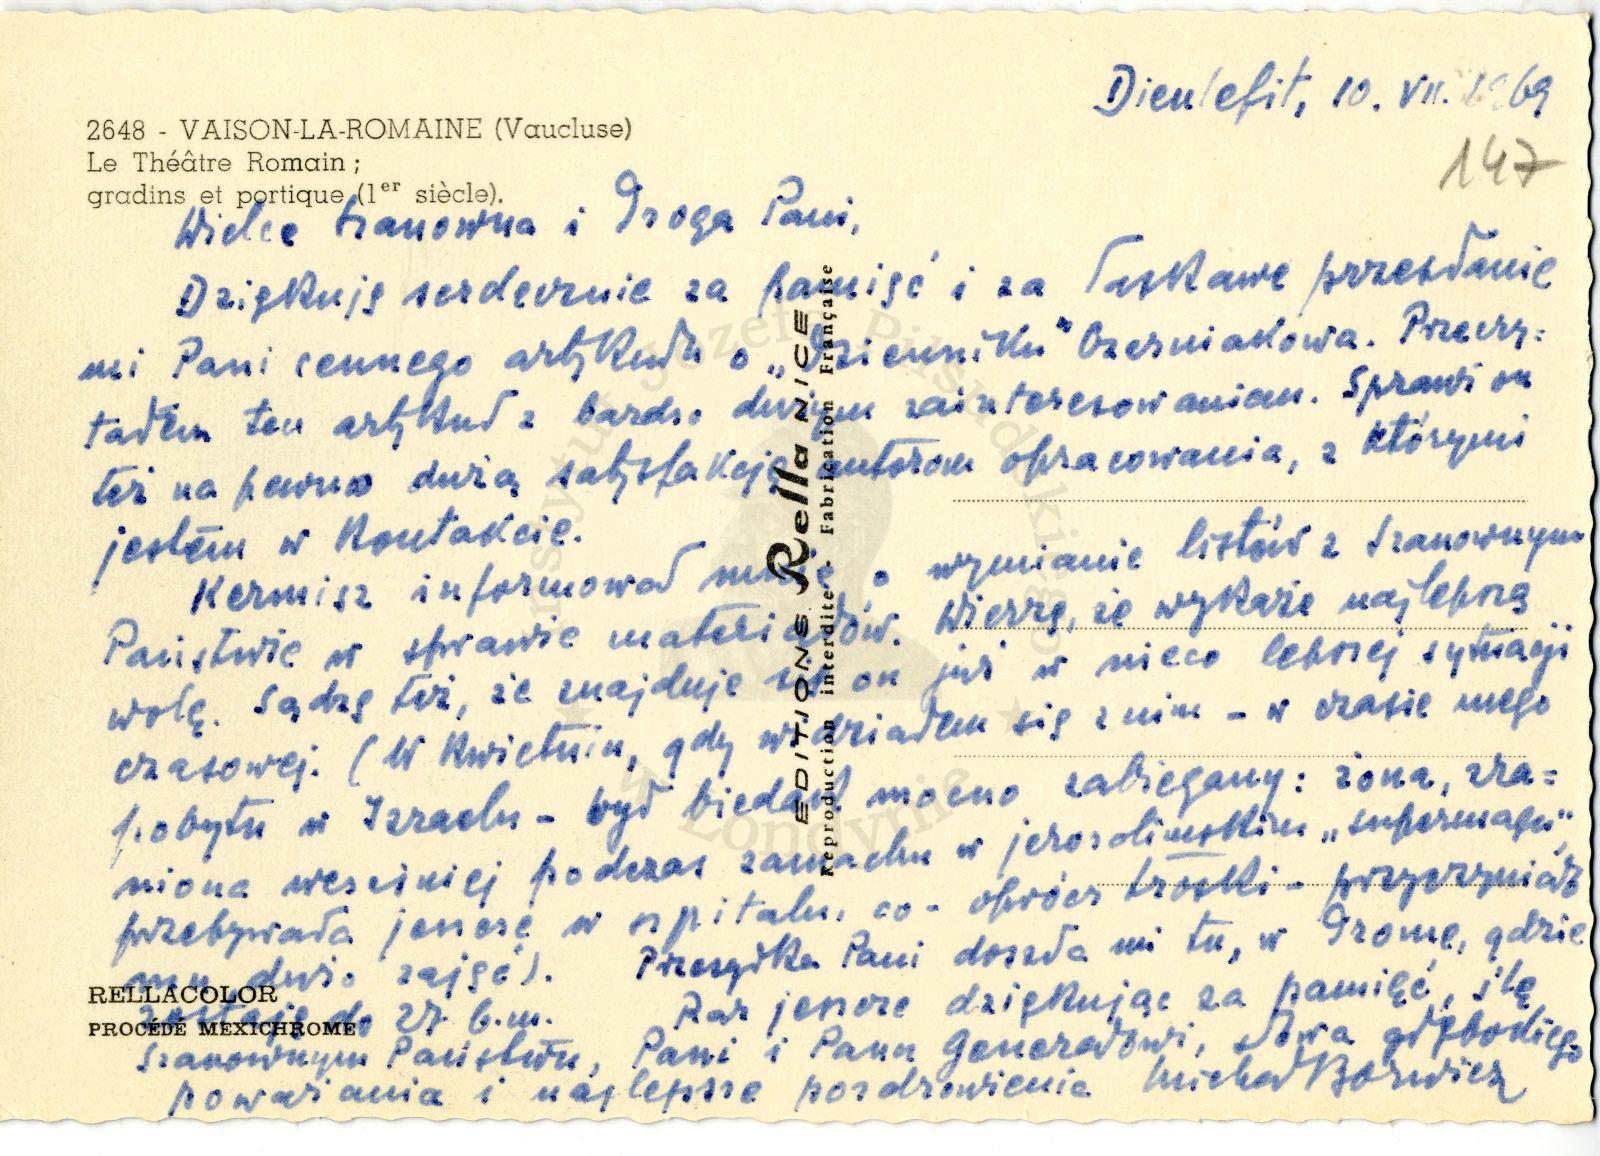 Dieulefit, 10. VII. 1969
147
2648 - VAISON-LA-ROMAINE (Vaucluse)
Le Théâtre Romain ;
gradins et portique (1er siècle).
Wielce Szanowna i Droga Pani,
Dziękuję serdecznie za pamięć i za łaskawe przesłanie
mi Pani cennego artykułu o „Dzienniku" Czerniakowa. Przeczy=
tałem ten artykuł z bardzo dużym zainteresowaniem. Sprawi on
też na pewno dużą satysfakcję autorom opracowania, z którymi
jestem w kontakcie.
Kermisz informował mnie o wymianie listów z Szanownym
Państwie w sprawie materiałów. Wierzę, że wykaże najlepszą
wolę. Sądzę też, że znajduje się on już w nieco lepszej sytuacji
czasowej. (W kwietniu, gdy widziałem się z nim - w czasie mego
pobytu w Izraelu - był biedak mocno zabiegany: żona, zra=
niona wcześniej podczas zamachu w jerozolimskim „supermagu",
przebywała jeszcze w szpitalu, co - oprócz troski - przyczyniało
mu dużo zajęć). Przesyłka Pani doszła mi tu, w Drôme, gdzie
zostaję do 27 b.m. Raz jeszcze dziękując za pamięć, ślę
Szanownym Państwu, Pani i Panu Generałowi, słowa głębokiego
poważania i najlepsze pozdrowienia Michał Borwicz
EDITIONS Rella NICE
Reproduction interdite - Fabrication Française
RELLACOLOR
PROCÉDÉ MEXICHROME
Instytut Józefa Piłsudskiego
w Londynie